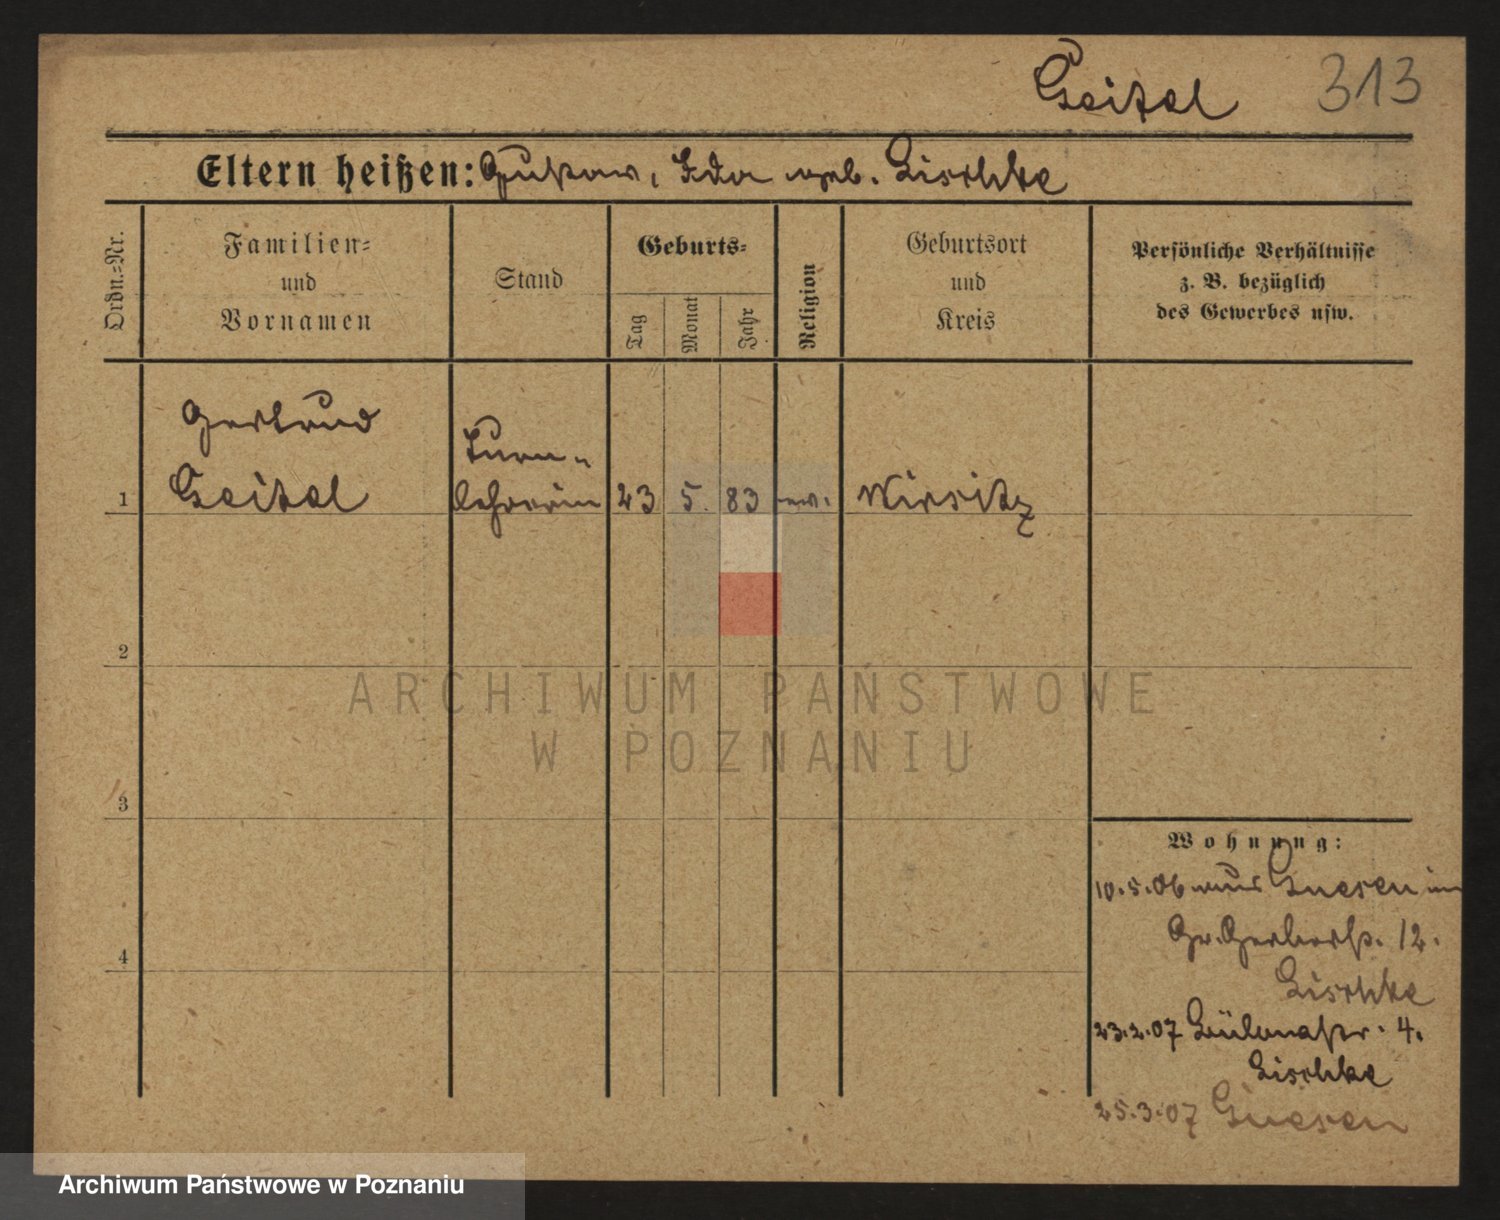 Geitel 313
Eltern heißen: Gustav, Ida geb. Lischke
Ordn.=Nr.
Familien=
und
Vornamen
Stand
Geburts=
Tag
Monat
Jahr
Religion
Geburtsort
und
Kreis
Persönliche Verhältnisse
z. B. bezüglich
des Gewerbes usw.
Gertrud
Geitel
Turn-
lehrerin
1
23 5. 83 ev. Wirsitz
2
3
4
Wohnung:
10.5.06 aus Gnesen in
Gr. Gerberstr. 12.
Lischke
23.2.07 4.
Lischke
25.3.07 Gnesen
ARCHIWUM PAŃSTWOWE
W POZNANIU
Archiwum Państwowe w Poznaniu